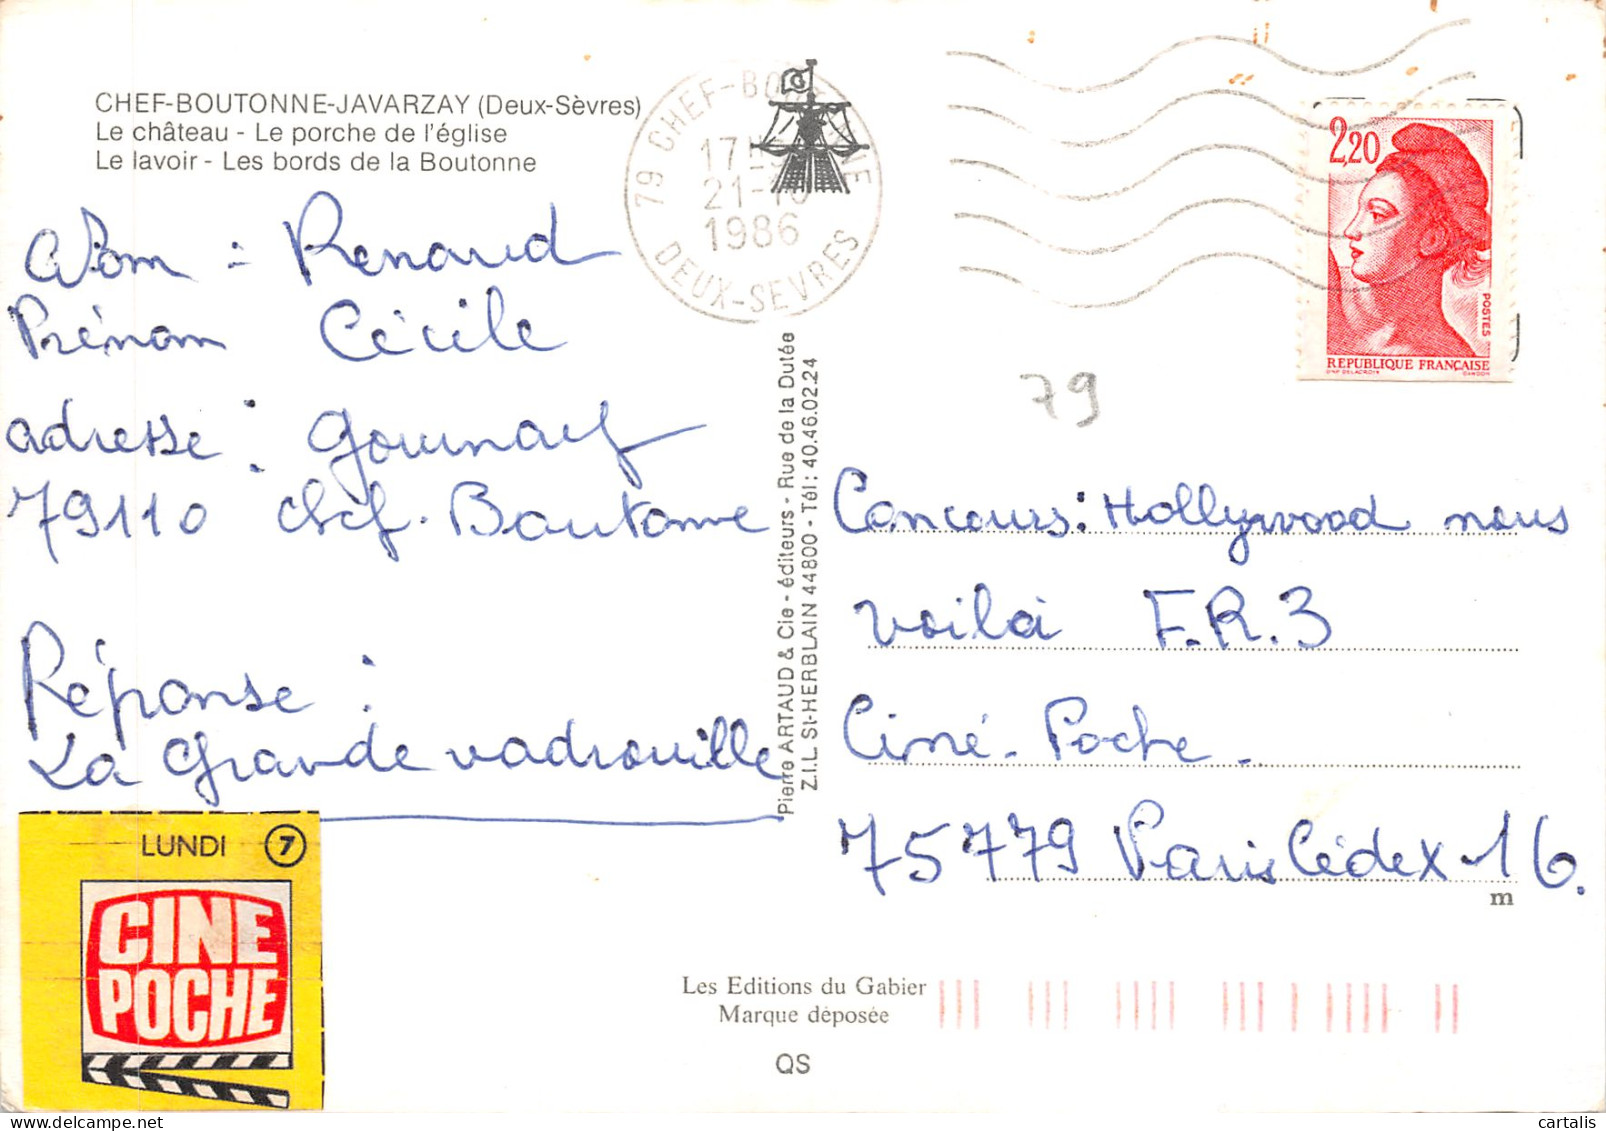 CHEF-BOUTONNE-JAVARZAY (Deux-Sèvres)
Le château - Le porche de l'église
Le lavoir - Les bords de la Boutonne
79 CHEF-BOUTONNE
17H
21-10
1986
DEUX-SEVRES
2,20
POSTES
REPUBLIQUE FRANÇAISE
D'AP. DELACROIX GANDON
Nom : Renaud
Prénom Cécile
adresse : Gournay
79110 chef-Boutonne
Réponse :
La Grande vadrouille
LUNDI 7
CINE
POCHE
Pierre ARTAUD & Cie - éditeurs - Rue de la Dutée
Z.I.L. St-HERBLAIN 44800 - Tél : 40.46.02.24
79
Concours : Hollywood nous
voilà F.R.3
Ciné-Poche-
75779 Paris Cédex 16.
m
Les Editions du Gabier
Marque déposée
QS
cartalis